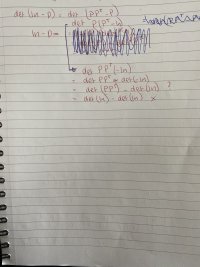 det(In - P) = det(PPᵀ - P)
det P(Pᵀ - In)
In - P =
det PPᵀ(-In)
= det PPᵀ + det(-In)
= det(PPᵀ) - det(In) ?
= det(In) - det(In) x